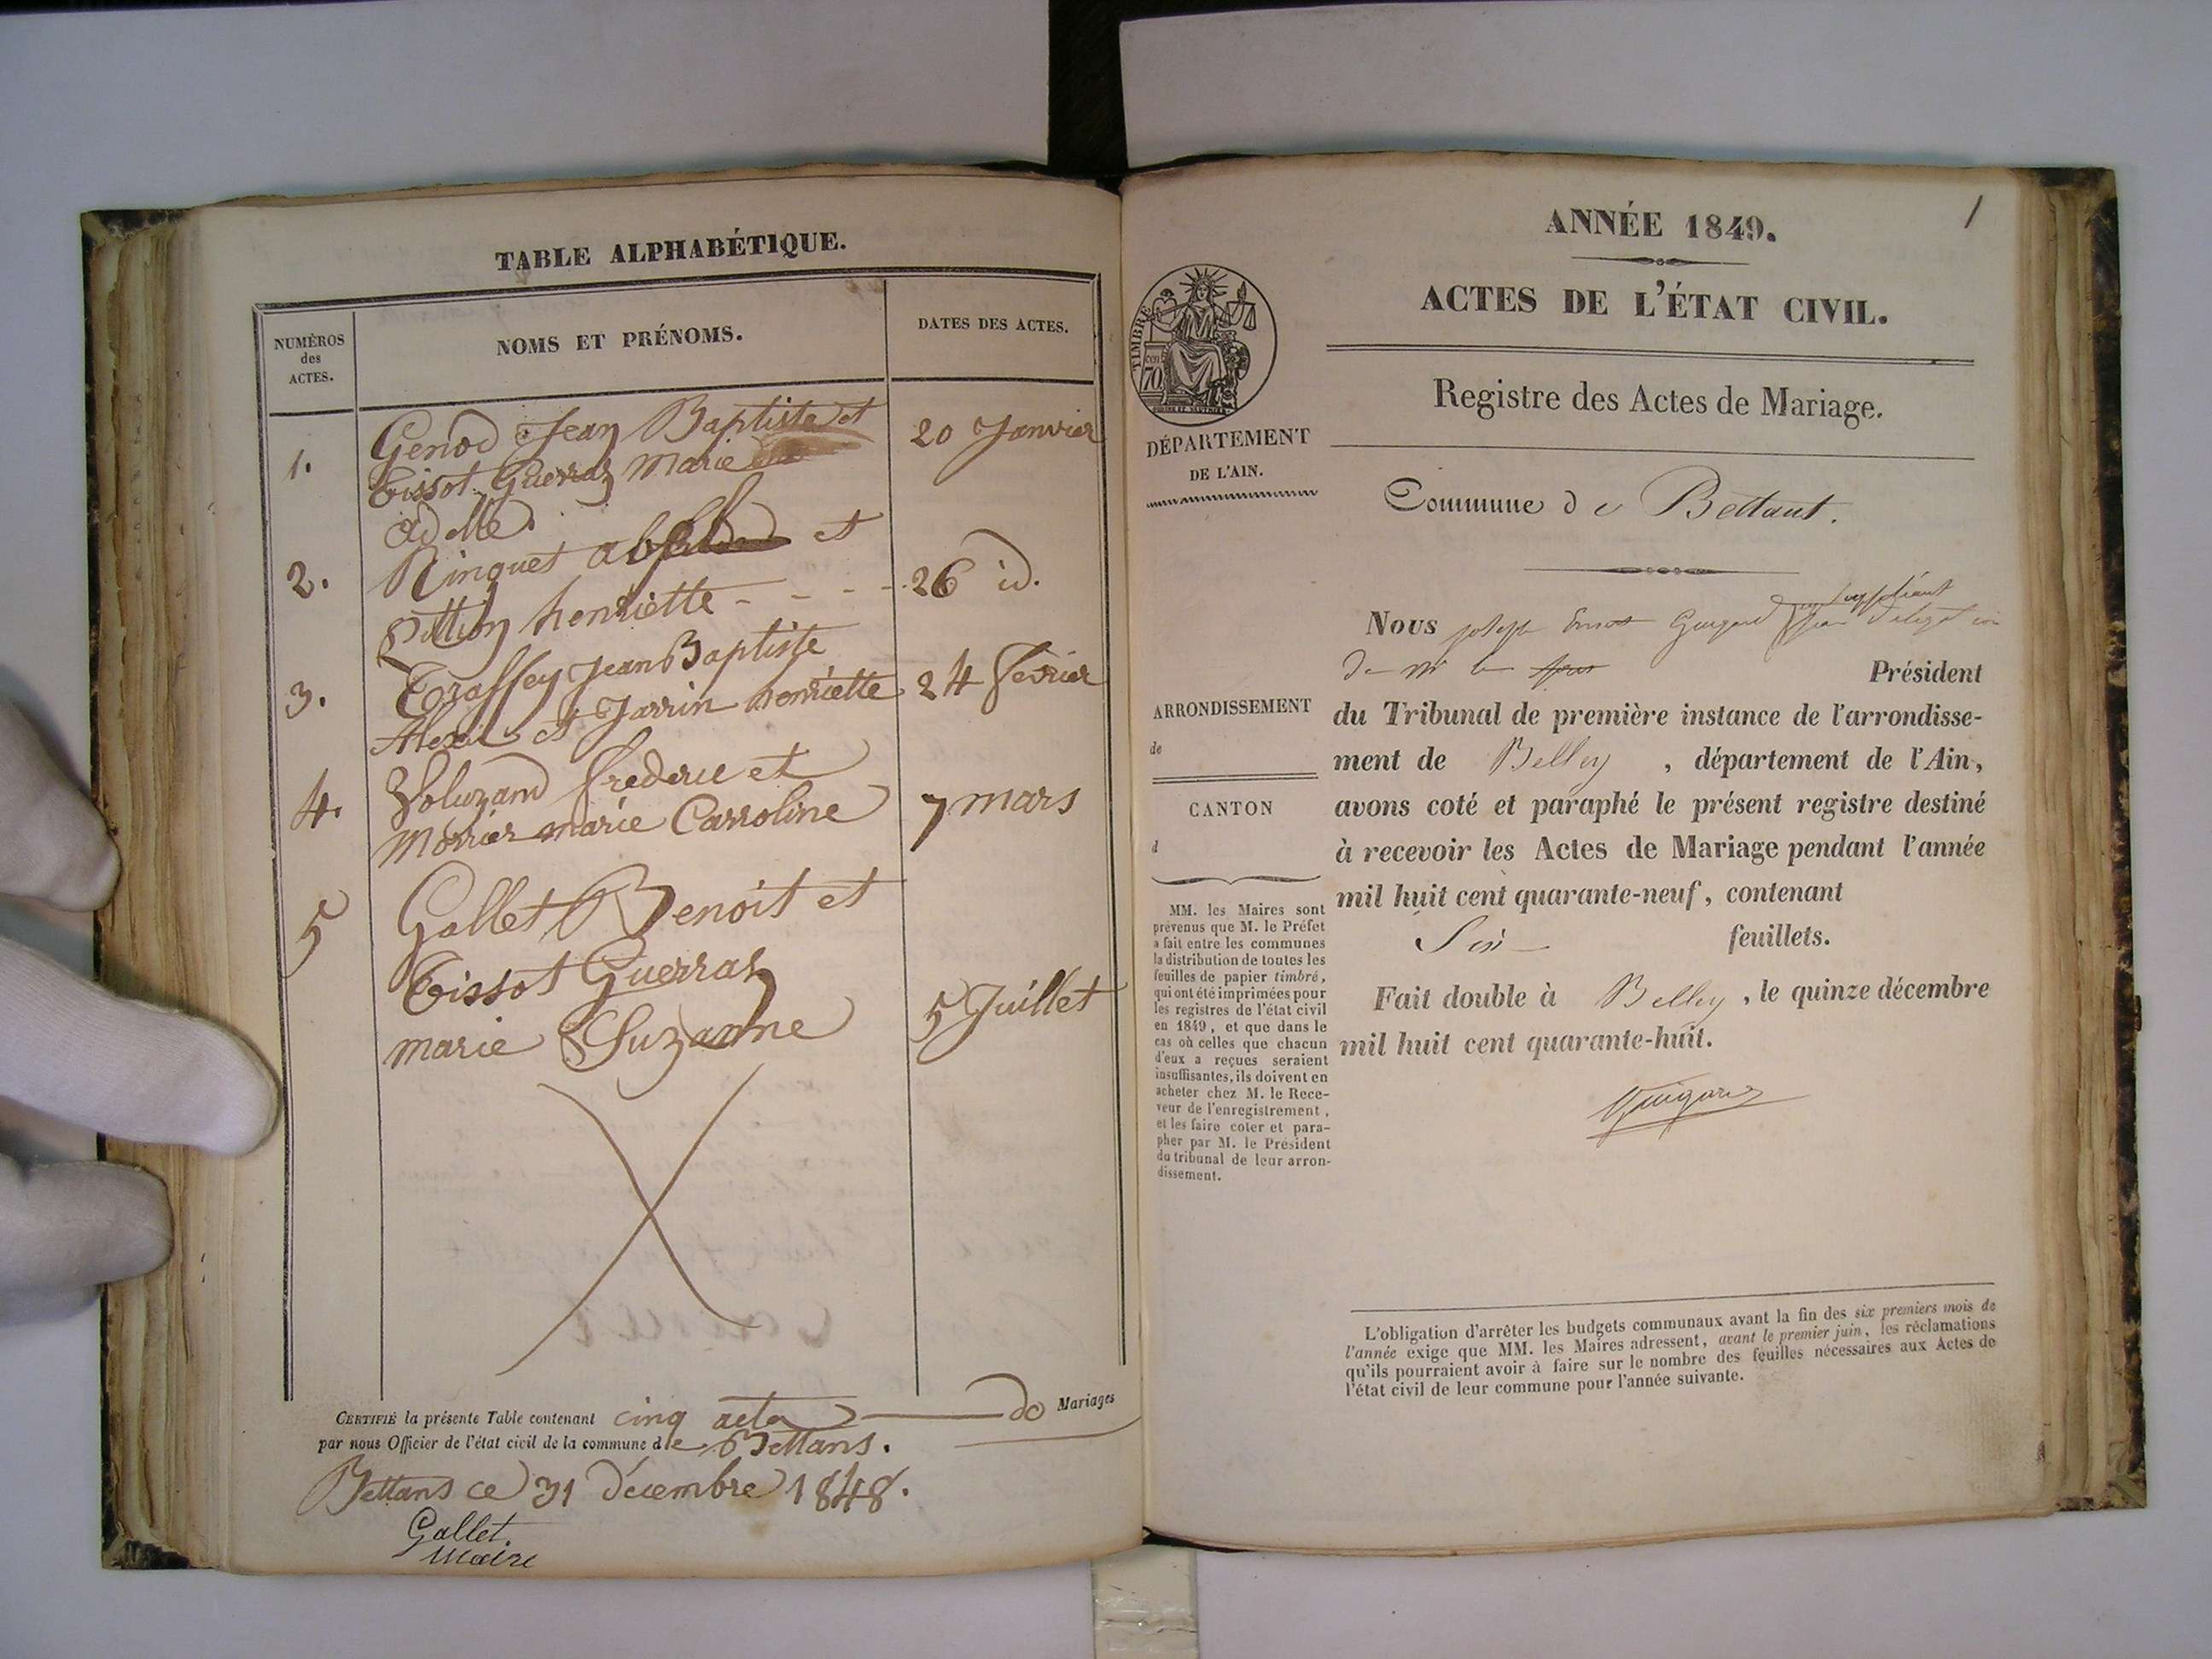 TABLE ALPHABÉTIQUE.
NUMÉROS
des
ACTES.
NOMS ET PRÉNOMS.
DATES DES ACTES.
1.
Genod Jean Baptiste et
Tissot Guerraz Marie
adelle
20 Janvier
2.
Ringuet et
Pittion henriette - - - -
26 id.
3.
Traffey Jean Baptiste
Alexis et Jarrin henriette
24 fevrier
4.
Voluzand frederic et
Morrier marie Carroline
7 mars
5
Gallet Benoit et
Tissot Guerraz
marie Suzanne
5 Juillet
CERTIFIÉ la présente Table contenant cinq actes de Mariages
par nous Officier de l'état civil de la commune de Bettans.
Bettans ce 31 décembre 1848.
Gallet
Maire
1
ANNÉE 1849.
ACTES DE L'ÉTAT CIVIL.
Registre des Actes de Mariage.
TIMBRE
70
DÉPARTEMENT
DE L'AIN.
Commune de Bettant.
suppléant
Nous joseph Guigard
de Mr le Président
du Tribunal de première instance de l'arrondisse-
ment de Belley, département de l'Ain,
avons coté et paraphé le présent registre destiné
à recevoir les Actes de Mariage pendant l'année
mil huit cent quarante-neuf, contenant
Six feuillets.
Fait double à Belley, le quinze décembre
mil huit cent quarante-huit.
Guigard
ARRONDISSEMENT
de
CANTON
d
MM. les Maires sont
prévenus que M. le Préfet
a fait entre les communes
la distribution de toutes les
feuilles de papier timbré,
qui ont été imprimées pour
les registres de l'état civil
en 1849, et que dans le
cas où celles que chacun
d'eux a reçues seraient
insuffisantes, ils doivent en
acheter chez M. le Rece-
veur de l'enregistrement,
et les faire coter et para-
pher par M. le Président
du tribunal de leur arron-
dissement.
L'obligation d'arrêter les budgets communaux avant la fin des six premiers mois de
l'année exige que MM. les Maires adressent, avant le premier juin, les réclamations
qu'ils pourraient avoir à faire sur le nombre des feuilles nécessaires aux Actes de
l'état civil de leur commune pour l'année suivante.